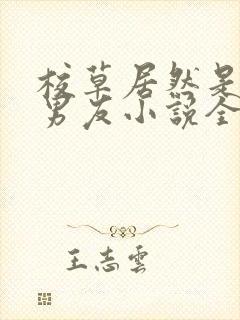 校草居然是
男友小说全
王志云